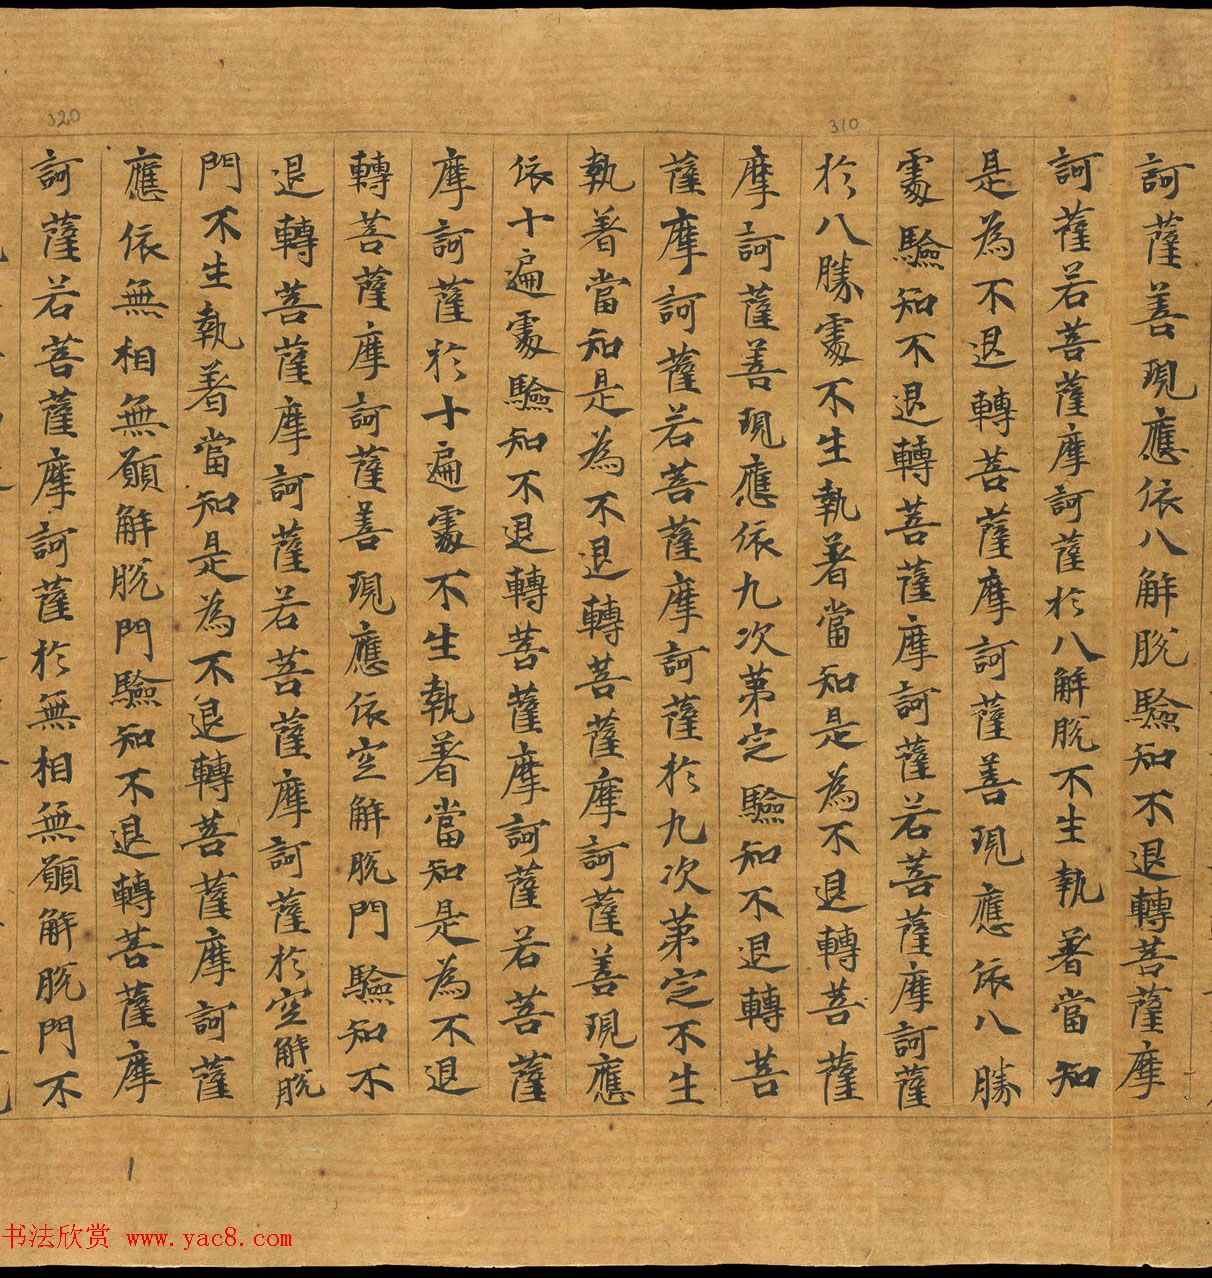 310
320
訶薩善現應依八解脫驗知不退轉菩薩摩
訶薩若菩薩摩訶薩於八解脫不生執著當知
是為不退轉菩薩摩訶薩善現應依八勝
處驗知不退轉菩薩摩訶薩若菩薩摩訶薩
於八勝處不生執著當知是為不退轉菩薩
摩訶薩善現應依九次第定驗知不退轉菩
薩摩訶薩若菩薩摩訶薩於九次第定不生
執著當知是為不退轉菩薩摩訶薩善現應
依十遍處驗知不退轉菩薩摩訶薩若菩薩
摩訶薩於十遍處不生執著當知是為不退
轉菩薩摩訶薩善現應依空解脫門驗知不
退轉菩薩摩訶薩若菩薩摩訶薩於空解脫
門不生執著當知是為不退轉菩薩摩訶薩
應依無相無願解脫門驗知不退轉菩薩摩
訶薩若菩薩摩訶薩於無相無願解脫門不
书法欣赏 www.yac8.com